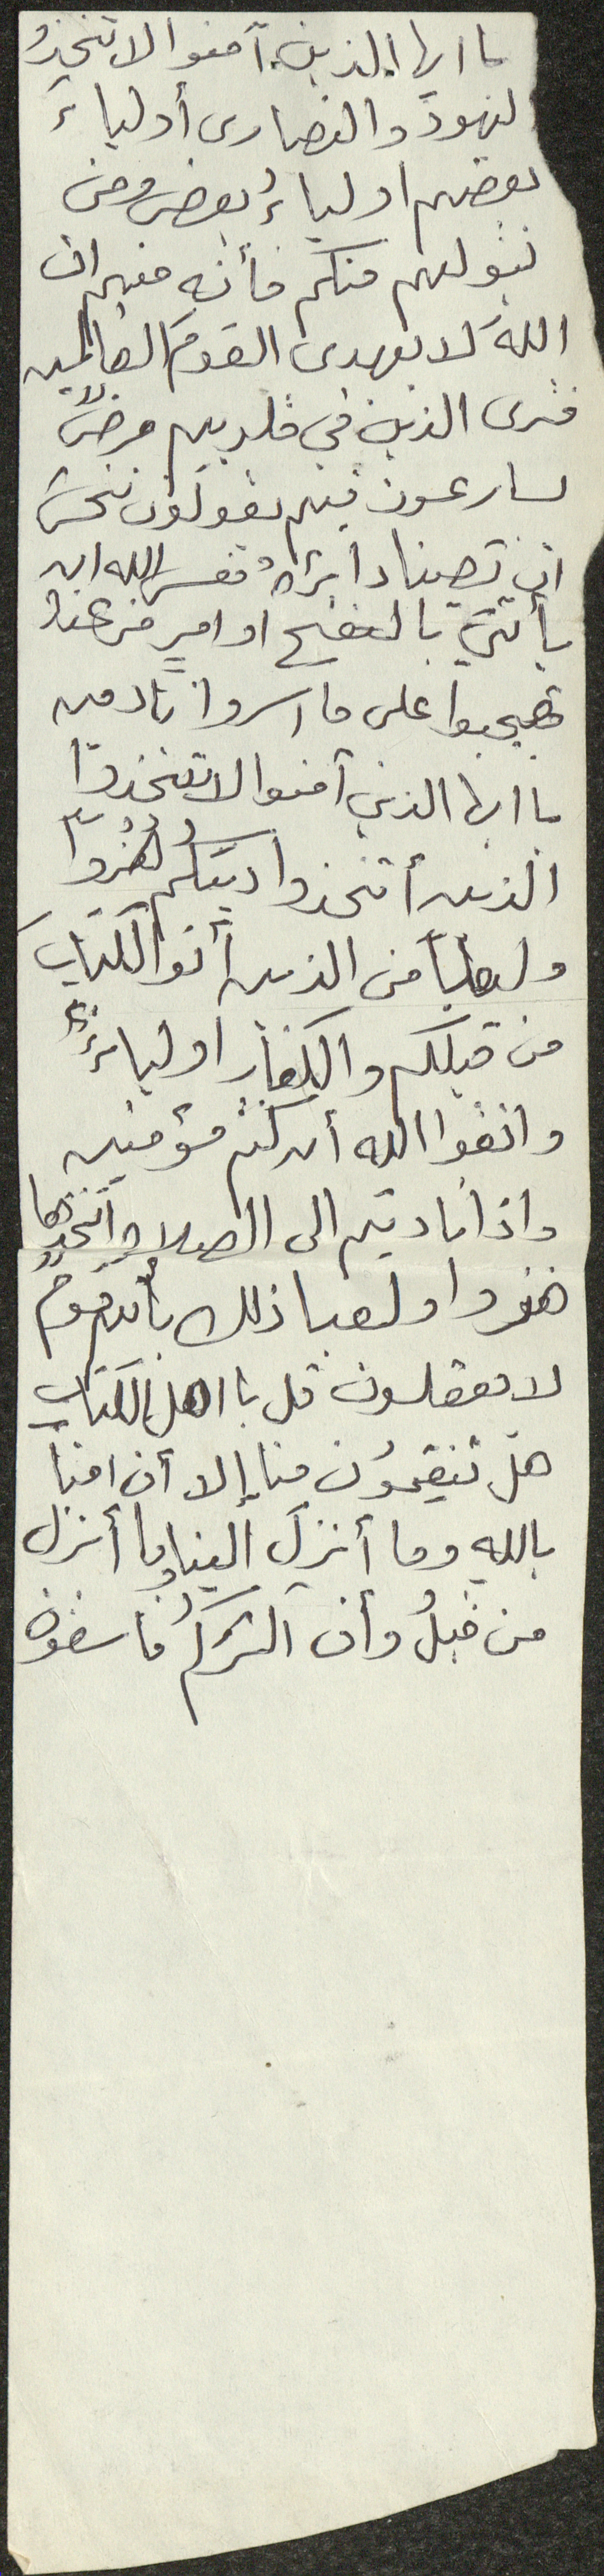 يا ايها الذين آمنوا لا تتخذوُ
ليهودَ والنصارى أولياءَ
بعضهم اولياءُ بعض ومن
يتولهم منكم فأنه منهم ان
اللهَ لا يهدى القومَ الظالمين
فترى الذين في قلوبهم مرضٌ
يسارعون فيهم يقولون نخشى
ان تصيبنا دائرةٌ فعسى الله ان
يأتيَ بالفتح او امرٍ من عنده
فيصبحوا على ما اسروا نادمين
يا ايها الذين آمنوا لا تتخذوا
الذين أتخذوا دينكم هُزُواً
ولعباً من الذين أتوا الكتابَ
من قبلكم والكفار أولياءَ
واتقوا الله أن كنتم مؤمنين
واذا ناديتم الى الصلاة أتخذوها
هزوا ولعبا ذلك بأنهم قومٌ
لا يعقلون قل يا اهل الكتاب
هل تنقِمُون منا إلا أن امنا
بالله وما أنزلَ الينا وما أنزل
من قبلُ وأن اكثركُم فاسقون